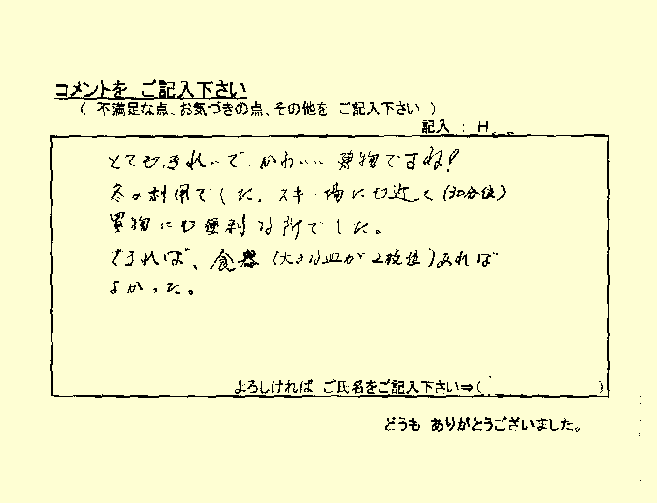 コメントを ご記入下さい
( 不満足な点、お気づきの点、その他を ご記入下さい )
記入 : H
とてもきれいで かわいい 建物ですね!
冬の利用でした。スキー場にも近く(30分位)
買物にも便利な所でした。
できれば、食器(大きな皿が2枚位)あれば
よかった。
よろしければ ご氏名をご記入下さい⇒( )
どうも ありがとうございました。